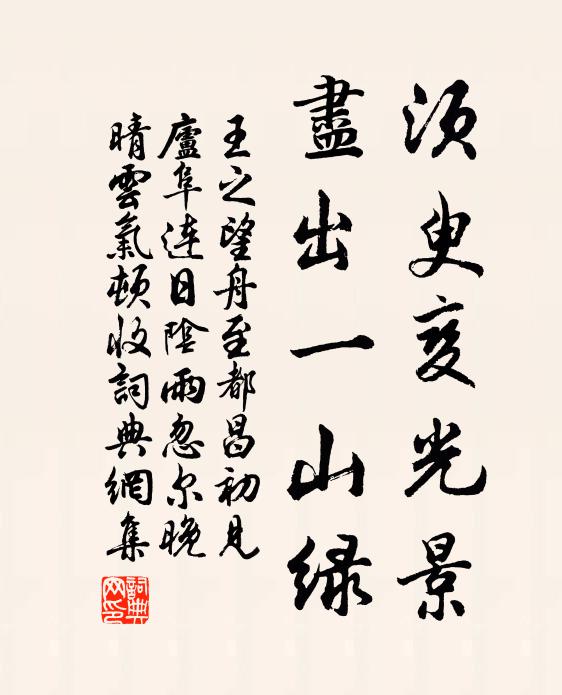 须臾变光景
盡出一山緑
王之望舟至都昌初見
廬阜連日陰雨忽尔晚
晴雲氣頓收詞典網集
詞典
网印